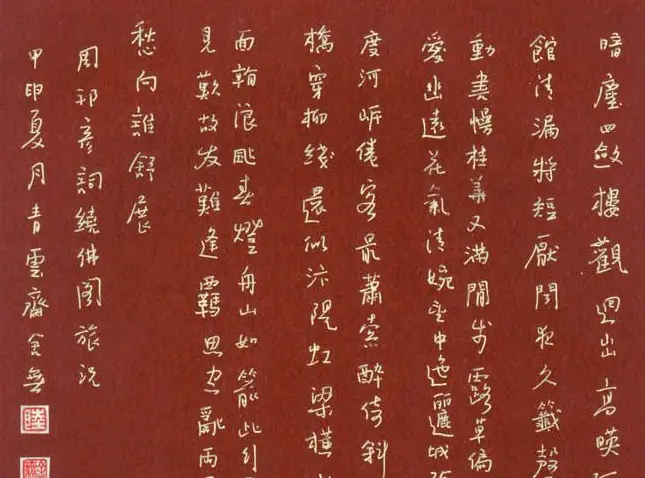 暗塵四斂樓觀迥出高映
館清漏將短厭聞夜久籤聲
動書幔桂華又滿閒步露草偏
愛幽遠花氣清婉望中迤邐城
度河岸倦客最蕭索醉倚斜
橋穿柳綫還似汴隄虹梁橫
面浪颭春燈舟如箭此行
見歎故友難逢羈思空亂兩
愁向誰舒展
周邦彥詞繞佛閣旅況
甲申夏月青雲齋